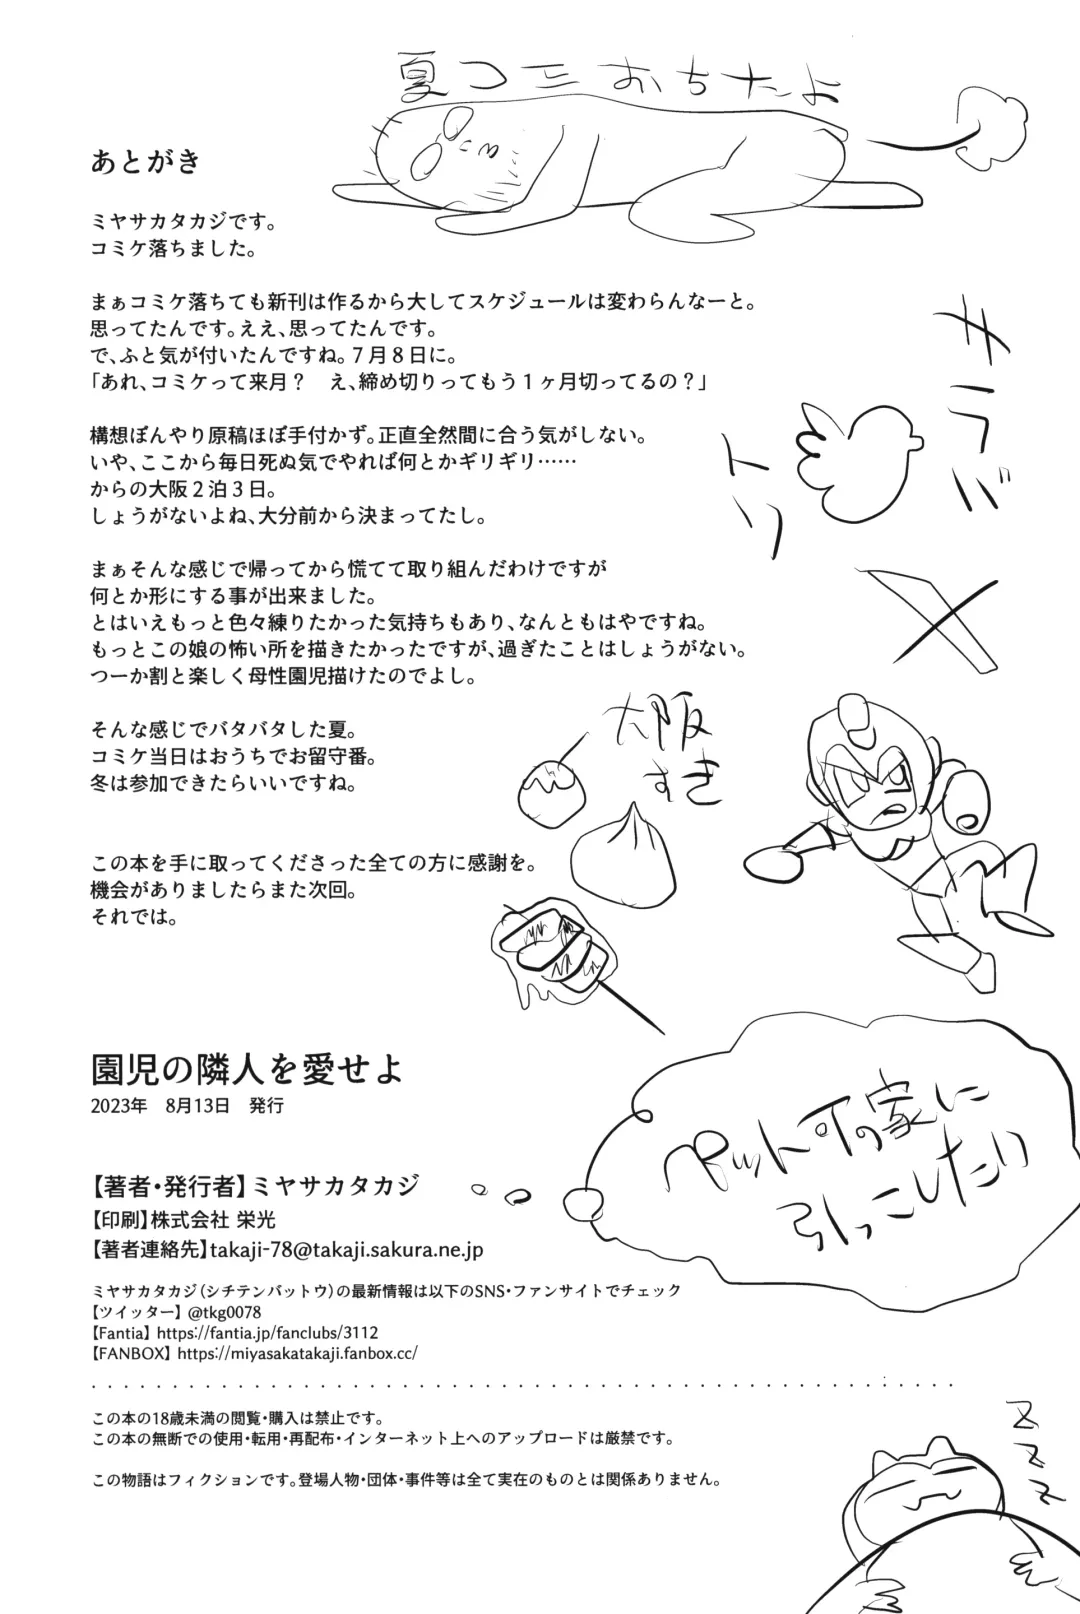 夏コミおちたよ
あとがき
ミヤサカタカジです。
コミケ落ちました。
まぁコミケ落ちても新刊は作るから大してスケジュールは変わらんなーと。
思ってたんです。ええ、思ってたんです。
で、ふと気が付いたんですね。７月８日に。
「あれ、コミケって来月？　え、締め切りってもう１ヶ月切ってるの？」
構想ぼんやり原稿ほぼ手付かず。正直全然間に合う気がしない。
いや、ここから毎日死ぬ気でやれば何とかギリギリ……
からの大阪２泊３日。
しょうがないよね、大分前から決まってたし。
まぁそんな感じで帰ってから慌てて取り組んだわけですが
何とか形にする事が出来ました。
とはいえもっと色々練りたかった気持ちもあり、なんともはやですね。
もっとこの娘の怖い所を描きたかったですが、過ぎたことはしょうがない。
つーか割と楽しく母性園児描けたのでよし。
そんな感じでバタバタした夏。
コミケ当日はおうちでお留守番。
冬は参加できたらいいですね。
この本を手に取ってくださった全ての方に感謝を。
機会がありましたらまた次回。
それでは。
サラバ
トリ
X
大阪
すき
ペット可の家に
引っこしたい
園児の隣人を愛せよ
2023年　8月13日　発行
【著者・発行者】ミヤサカタカジ
【印刷】株式会社 栄光
【著者連絡先】takaji-78@takaji.sakura.ne.jp
ミヤサカタカジ（シチテンバットウ）の最新情報は以下のSNS・ファンサイトでチェック
【ツイッター】 @tkg0078
【Fantia】 https://fantia.jp/fanclubs/3112
【FANBOX】 https://miyasakatakaji.fanbox.cc/
この本の18歳未満の閲覧・購入は禁止です。
この本の無断での使用・転用・再配布・インターネット上へのアップロードは厳禁です。
この物語はフィクションです。登場人物・団体・事件等は全て実在のものとは関係ありません。
Z
Z
Z
Z